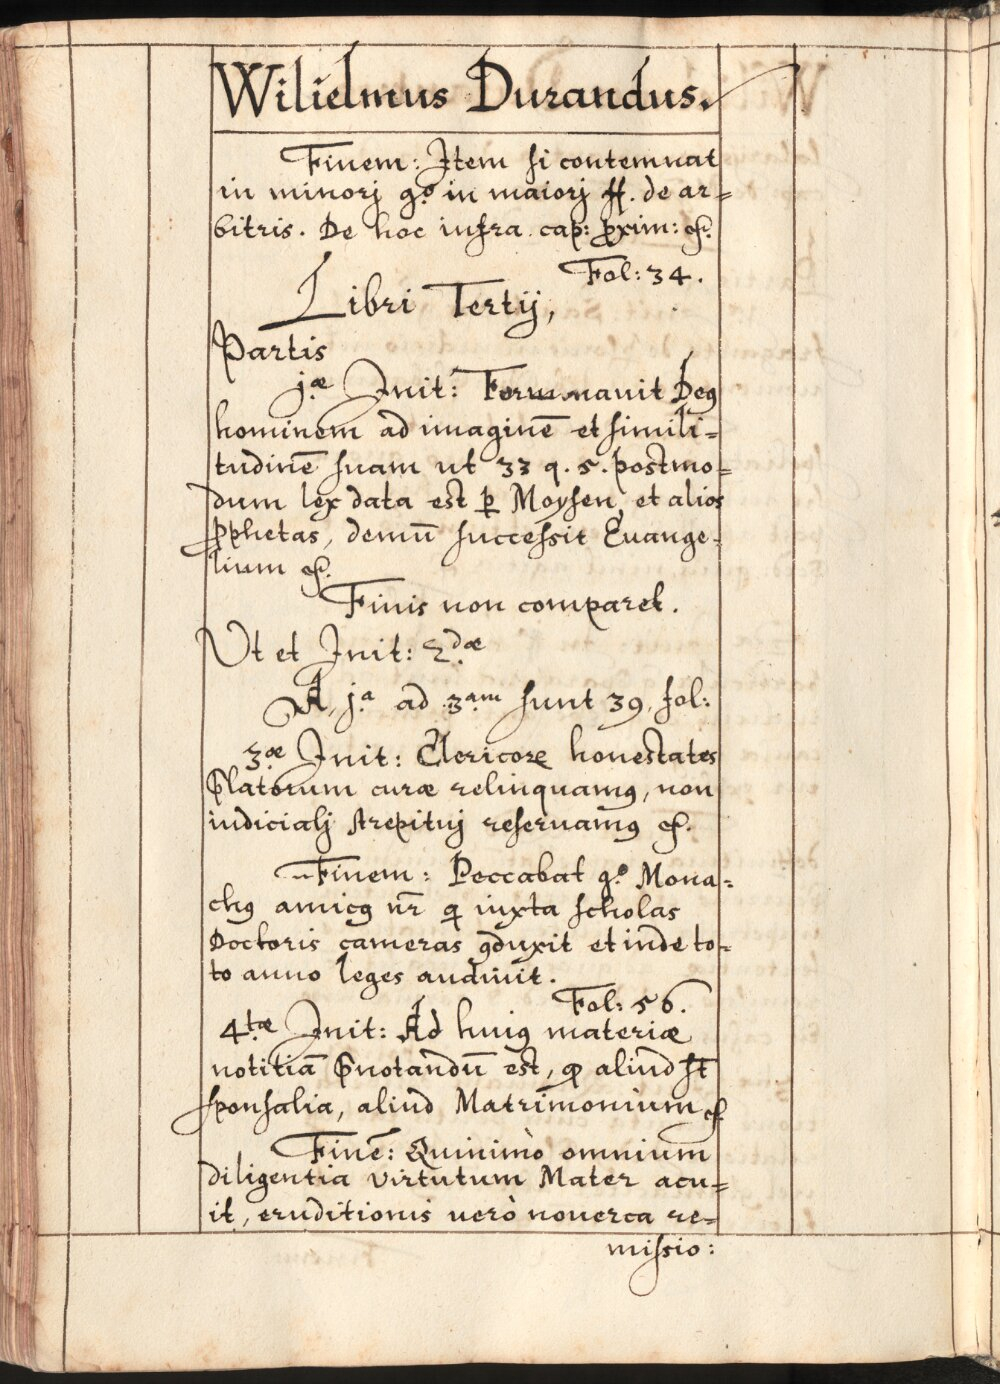 Wilielmus Durandus.
Finem: Item si contemnat
in minorj gͦ in maiorj ff. de ar=
bitris. De hoc infra cap: ꝓxim: ꝛc.
Fol: 34.
Libri Tertij,
Partis
jæ Init: Formauit Deꝰ
hominem ad imaginē et simili=
tudinē suam ut 33 q. 5. postmo=
dum lex data est ꝑ Moysen et alios
ꝓphetas, demū successit Euange=
lium ꝛc.
Finis non comparet.
Ut et Init: 2dæ
A, jª ad 3am sunt 39. fol:
3æ Init: Clericoꝝ honestates
P̄latorum curæ relinquamꝰ, non
iudicialj strepituj reseruamꝰ ꝛc.
Finem: Peccabat gͦ Mona=
chꝰ amicꝰ nr̄ ꝗ iuxta scholas
Doctoris cameras ꝯduxit et inde to=
to anno leges audiuit.
Fol: 56.
4tæ Init: Ad huiꝰ materiæ
notitiā p̄notandū est, ꝙ aliud st̄
sponsalia, aliud Matrimonium ꝛc
Finē: Quinimò omnium
diligentia virtutum Mater acu=
it, eruditionis uerò nouerca re=
missio: